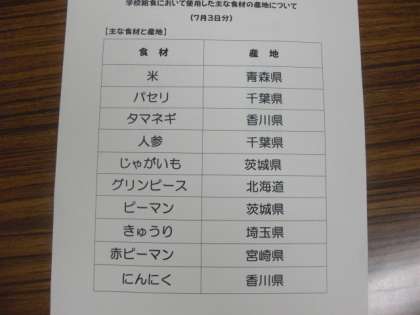 学校給食において使用した主な食材の産地について
(7月3日分)
【主な食材と産地】
食材 産地
米 青森県
パセリ 千葉県
タマネギ 香川県
人参 千葉県
じゃがいも 茨城県
グリンピース 北海道
ピーマン 茨城県
きゅうり 埼玉県
赤ピーマン 宮崎県
にんにく 香川県